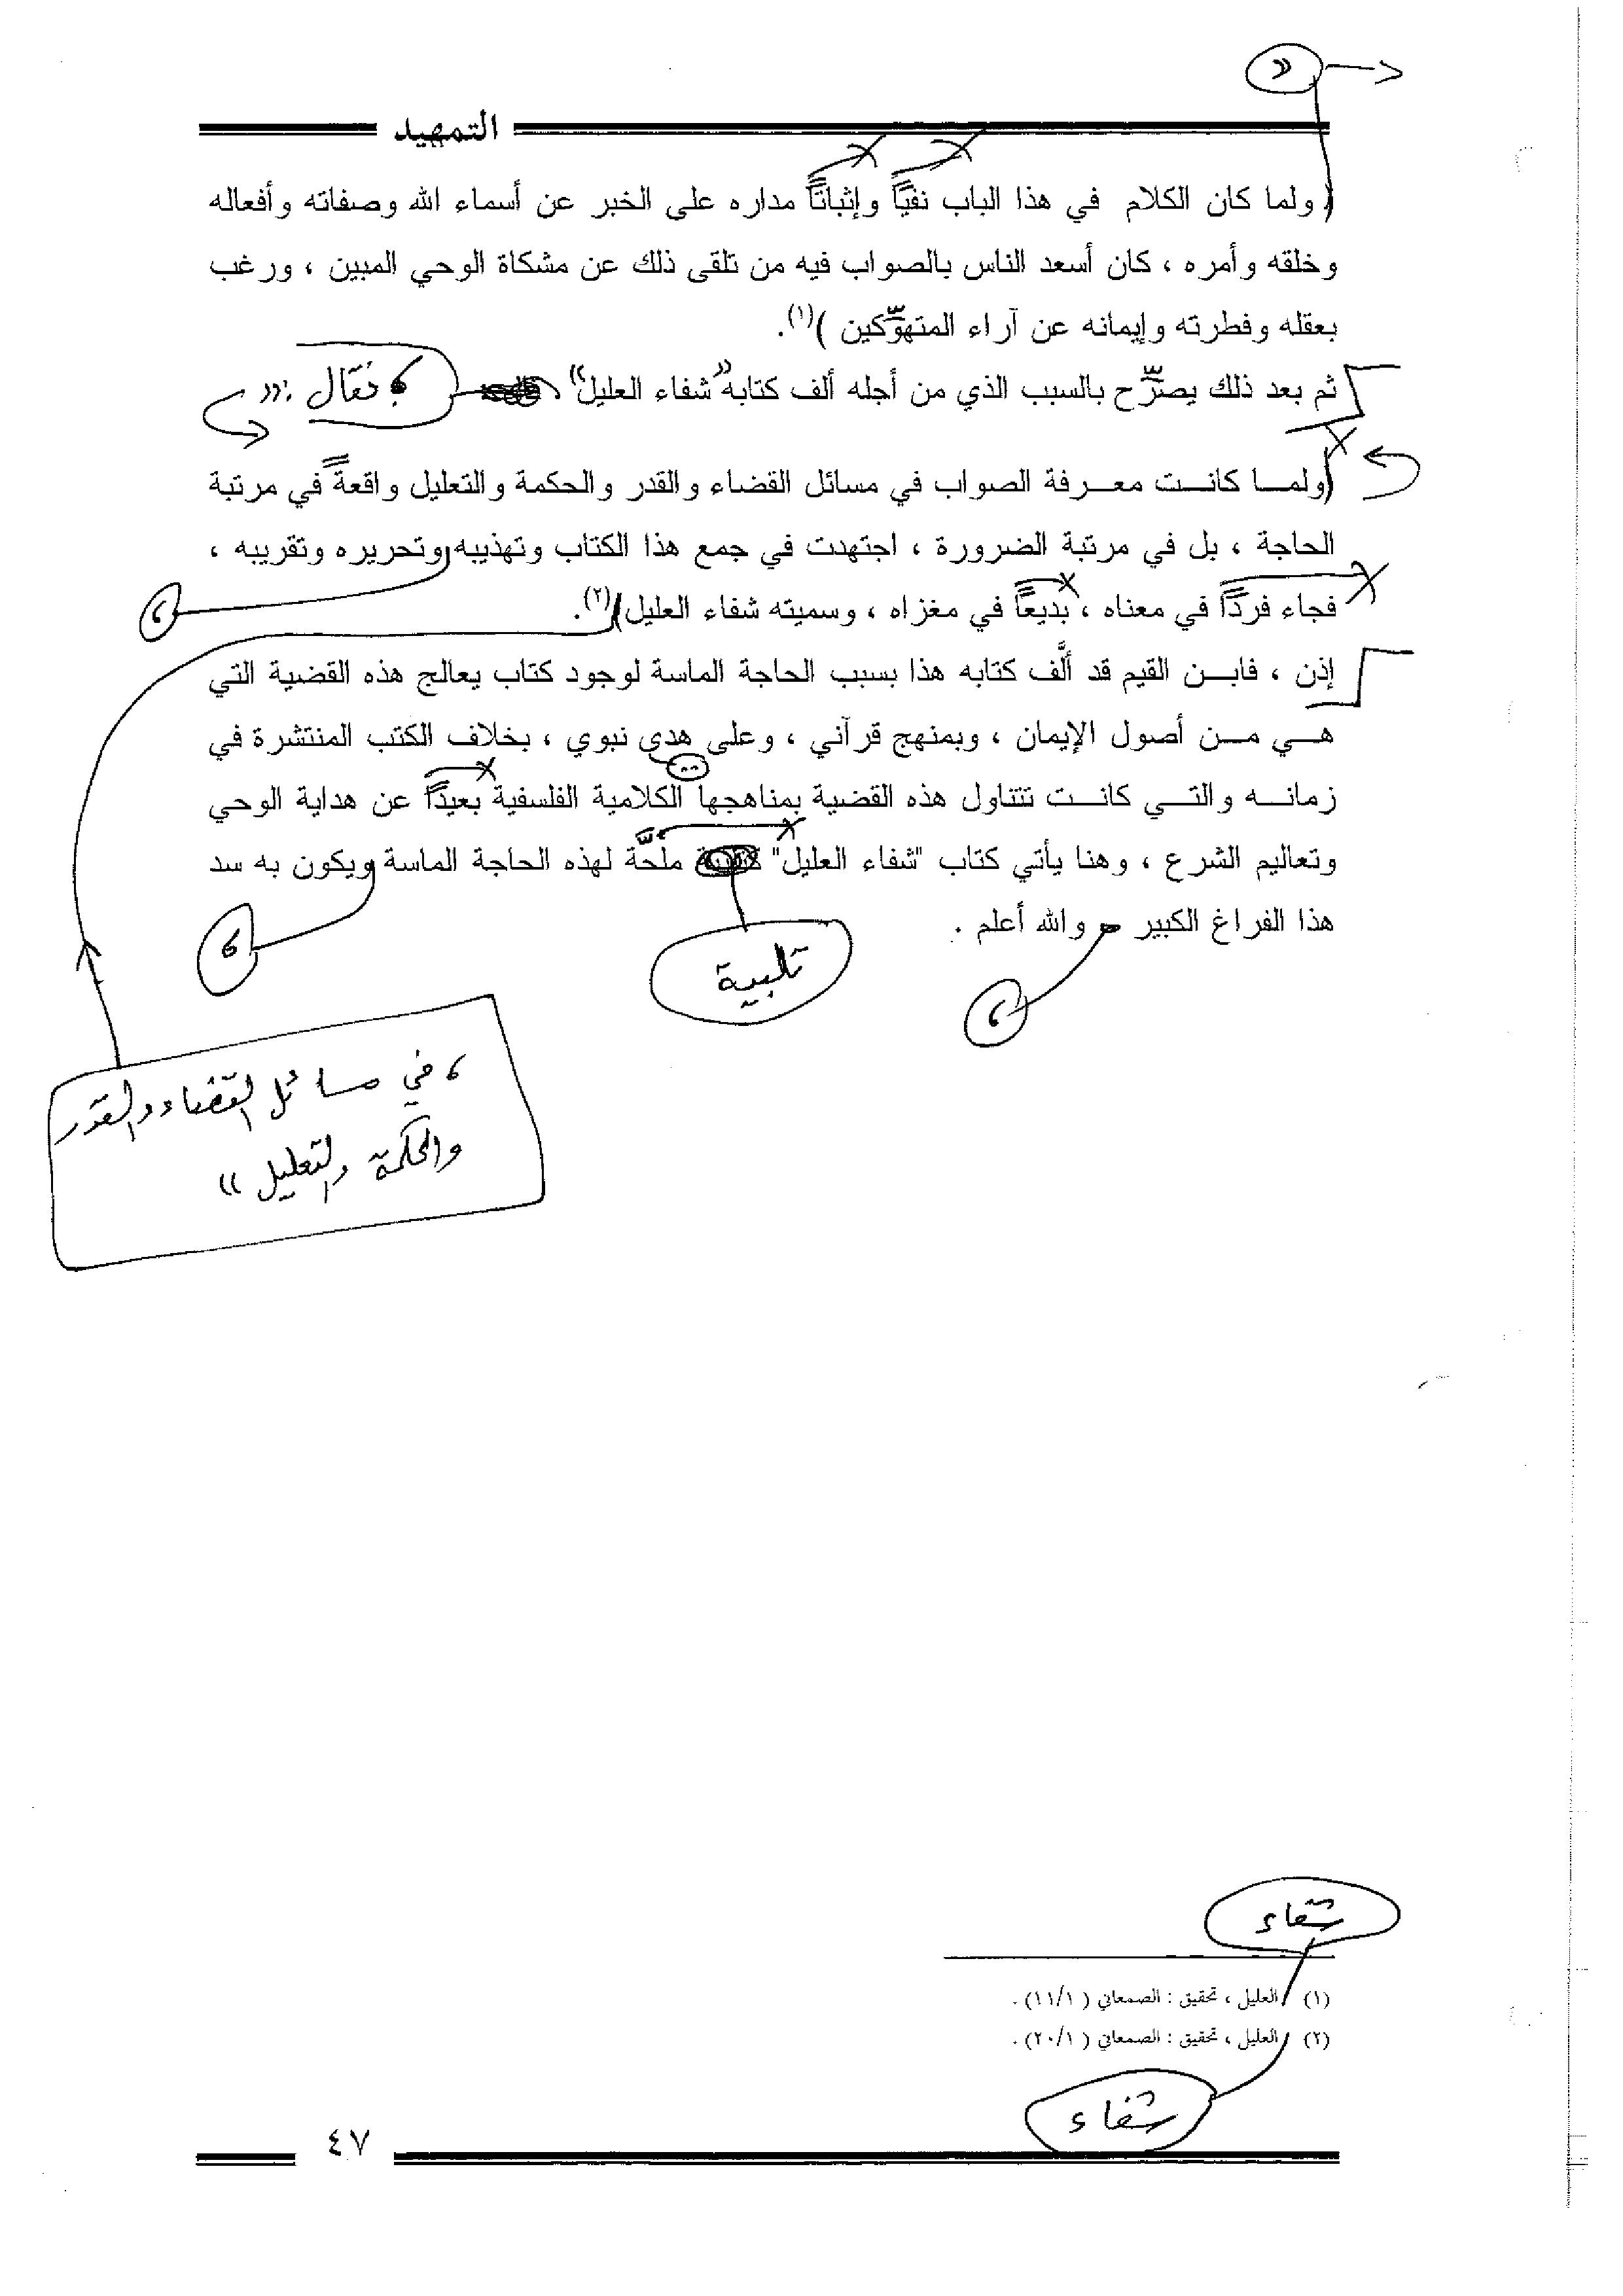 »
التمهيد
( ولما كان الكلام في هذا الباب نفياً وإثباتاً مداره على الخبر عن أسماء الله وصفاته وأفعاله
وخلقه وأمره ، كان أسعد الناس بالصواب فيه من تلقى ذلك عن مشكاة الوحي المبين ، ورغب
بعقله وفطرته وإيمانه عن آراء المتهوِّكين )(١).
ثم بعد ذلك يصرِّح بالسبب الذي من أجله ألف كتابه "شفاء العليل" ، فقال : »
(ولما كانت معرفة الصواب في مسائل القضاء والقدر والحكمة والتعليل واقعةً في مرتبة
الحاجة ، بل في مرتبة الضرورة ، اجتهدت في جمع هذا الكتاب وتهذيبه وتحريره وتقريبه ،
،
فجاء فرداً في معناه ، بديعاً في مغزاه ، وسميته شفاء العليل)(٢).
إذن ، فابن القيم قد ألَّف كتابه هذا بسبب الحاجة الماسة لوجود كتاب يعالج هذه القضية التي
هي من أصول الإيمان ، وبمنهج قرآني ، وعلى هدي نبوي ، بخلاف الكتب المنتشرة في
زمانه والتي كانت تتناول هذه القضية بمناهجها الكلامية الفلسفية بعيداً عن هداية الوحي
وتعاليم الشرع ، وهنا يأتي كتاب "شفاء العليل" ملحَّة لهذه الحاجة الماسة ويكون به سد
هذا الفراغ الكبير والله أعلم .
،
تلبية
،
، في مسائل القضاء والقدر
والحكمة والتعليل »
شفاء
(١) العليل ، تحقيق : الصمعاني ( ١١/١) .
(٢) العليل ، تحقيق : الصمعاني ( ٢٠/١) .
شفاء
٤٧